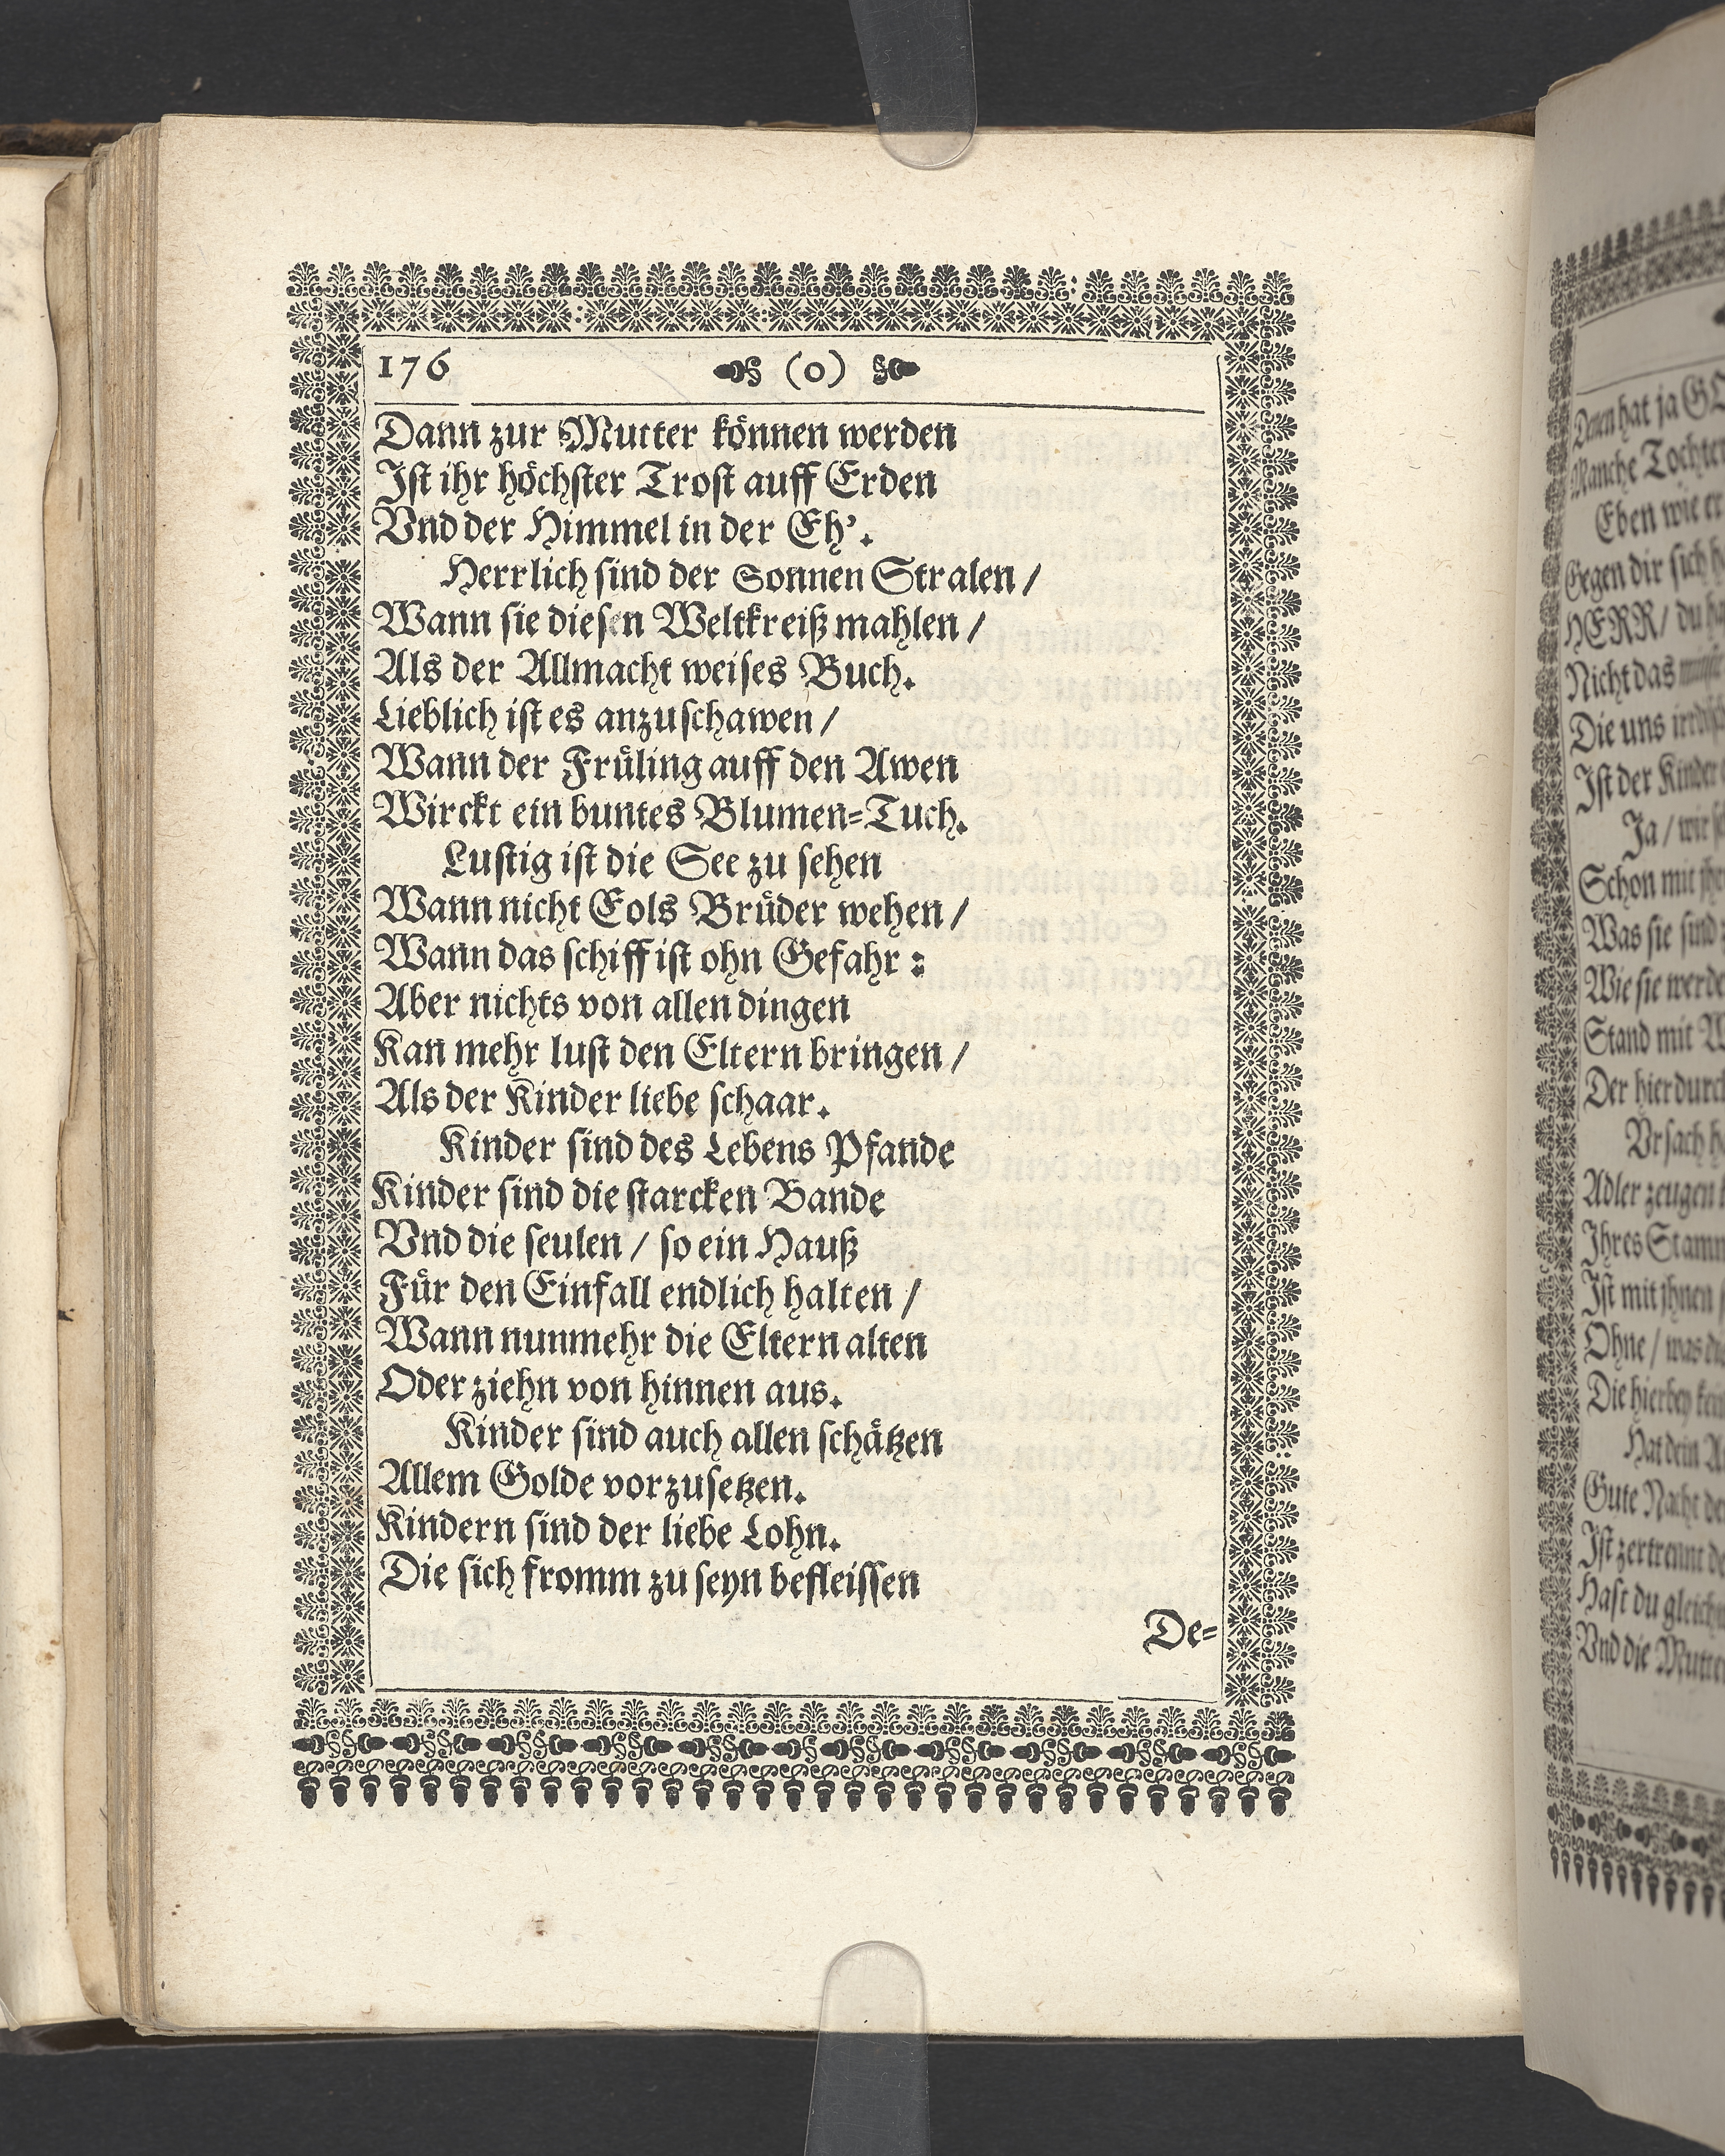 176 (0)
Dann zur Mutter können werden
Ist ihr höchster Trost auff Erden
Vnd der Himmel in der Eh'.
Herrlich sind der Sonnen Stralen /
Wann sie diesen Weltkreiß mahlen /
Als der Allmacht weises Buch.
Lieblich ist es anzuschawen /
Wann der Früling auff den Awen
Wirckt ein buntes Blumen=Tuch.
Lustig ist die See zu sehen
Wann nicht Eols Brüder wehen /
Wann das schiff ist ohn Gefahr :
Aber nichts von allen dingen
Kan mehr lust den Eltern bringen /
Als der Kinder liebe schaar.
Kinder sind des Lebens Pfande
Kinder sind die starcken Bande
Vnd die seulen / so ein Hauß
Für den Einfall endlich halten /
Wann nunmehr die Eltern alten
Oder ziehn von hinnen aus.
Kinder sind auch allen schätzen
Allem Golde vorzusetzen.
Kindern sind der liebe Lohn.
Die sich fromm zu seyn befleissen
De=
Denen hat ja
Manche
Eben wie er
Gegen dir sich
HERR / du
Nicht das
Die uns
Ist der Kinder
Ja / wir
Schon mit
Was sie sind
Wie sie
Stand mit
Der hier durch
Vrsach
Adler zeugen
Ihres
Ist mit jhnen
Ohne / was
Die hierbey
Hat dein
Gute Nacht
Ist zertrennt
Hast du gleich
Vnd die